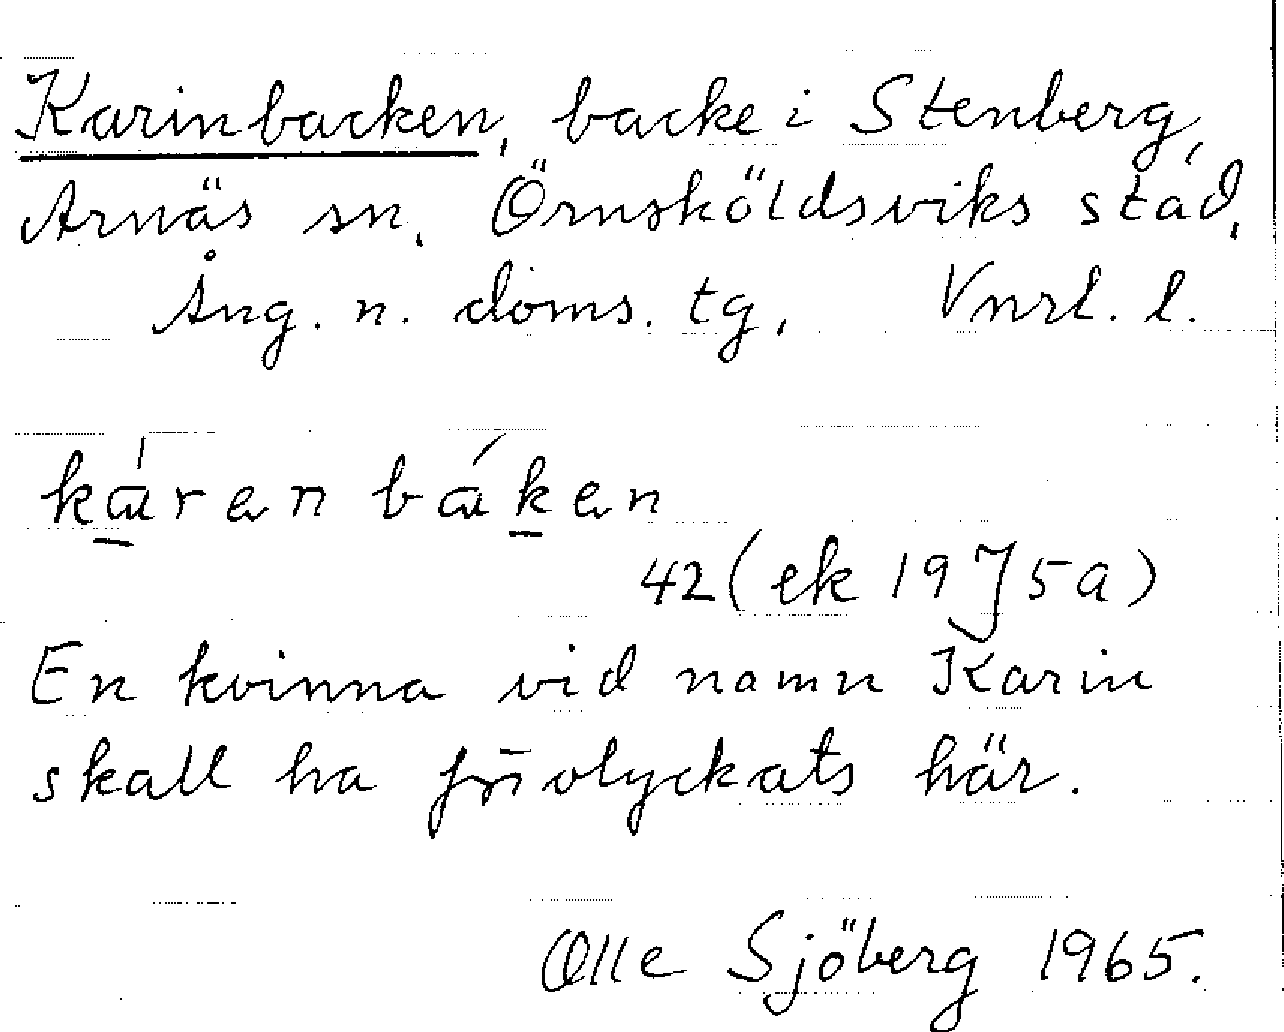 Karinbacken, backe i Stenberg,
Arnäs sn. Örnsköldsviks stad,
Ång. n. doms. tg, Vnrl. l.
káren báken
42 (ek 19 J 5a)
En kvinna vid namn Karin
skall ha förolyckats här.
Olle Sjöberg 1965.